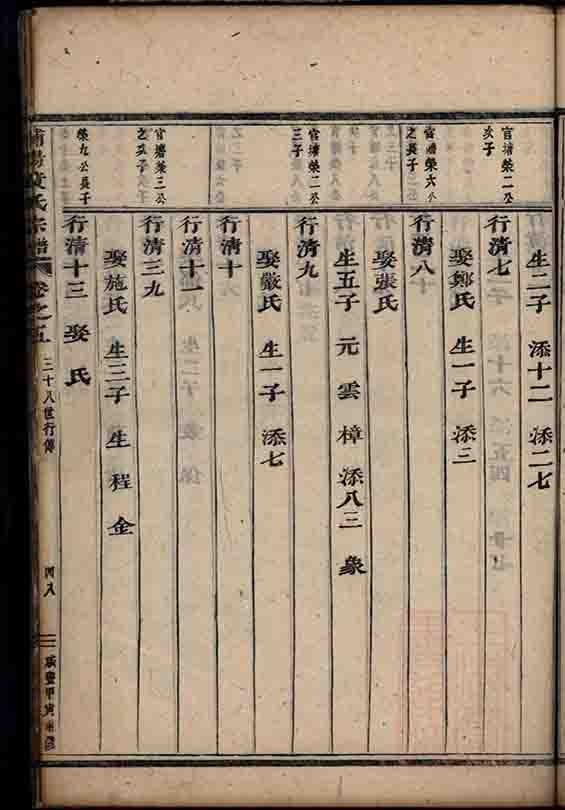 生二子 添十二 添二七
官塘榮二公次子
行清七
娶鄭氏 生一子 添三
官塘榮六公之長子
行清八
娶張氏
生五子 元 雲 樟 添八三 象
官塘榮二公三子
行清九
娶嚴氏 生一子 添七
行清十
行清十一
官塘榮三公之次子
行清三九
娶施氏 生三子 生 程 金
榮九公長子
行清十三 娶 氏
氏宗譜 卷之五 三十八世行傳 四八 咸豐甲寅重修